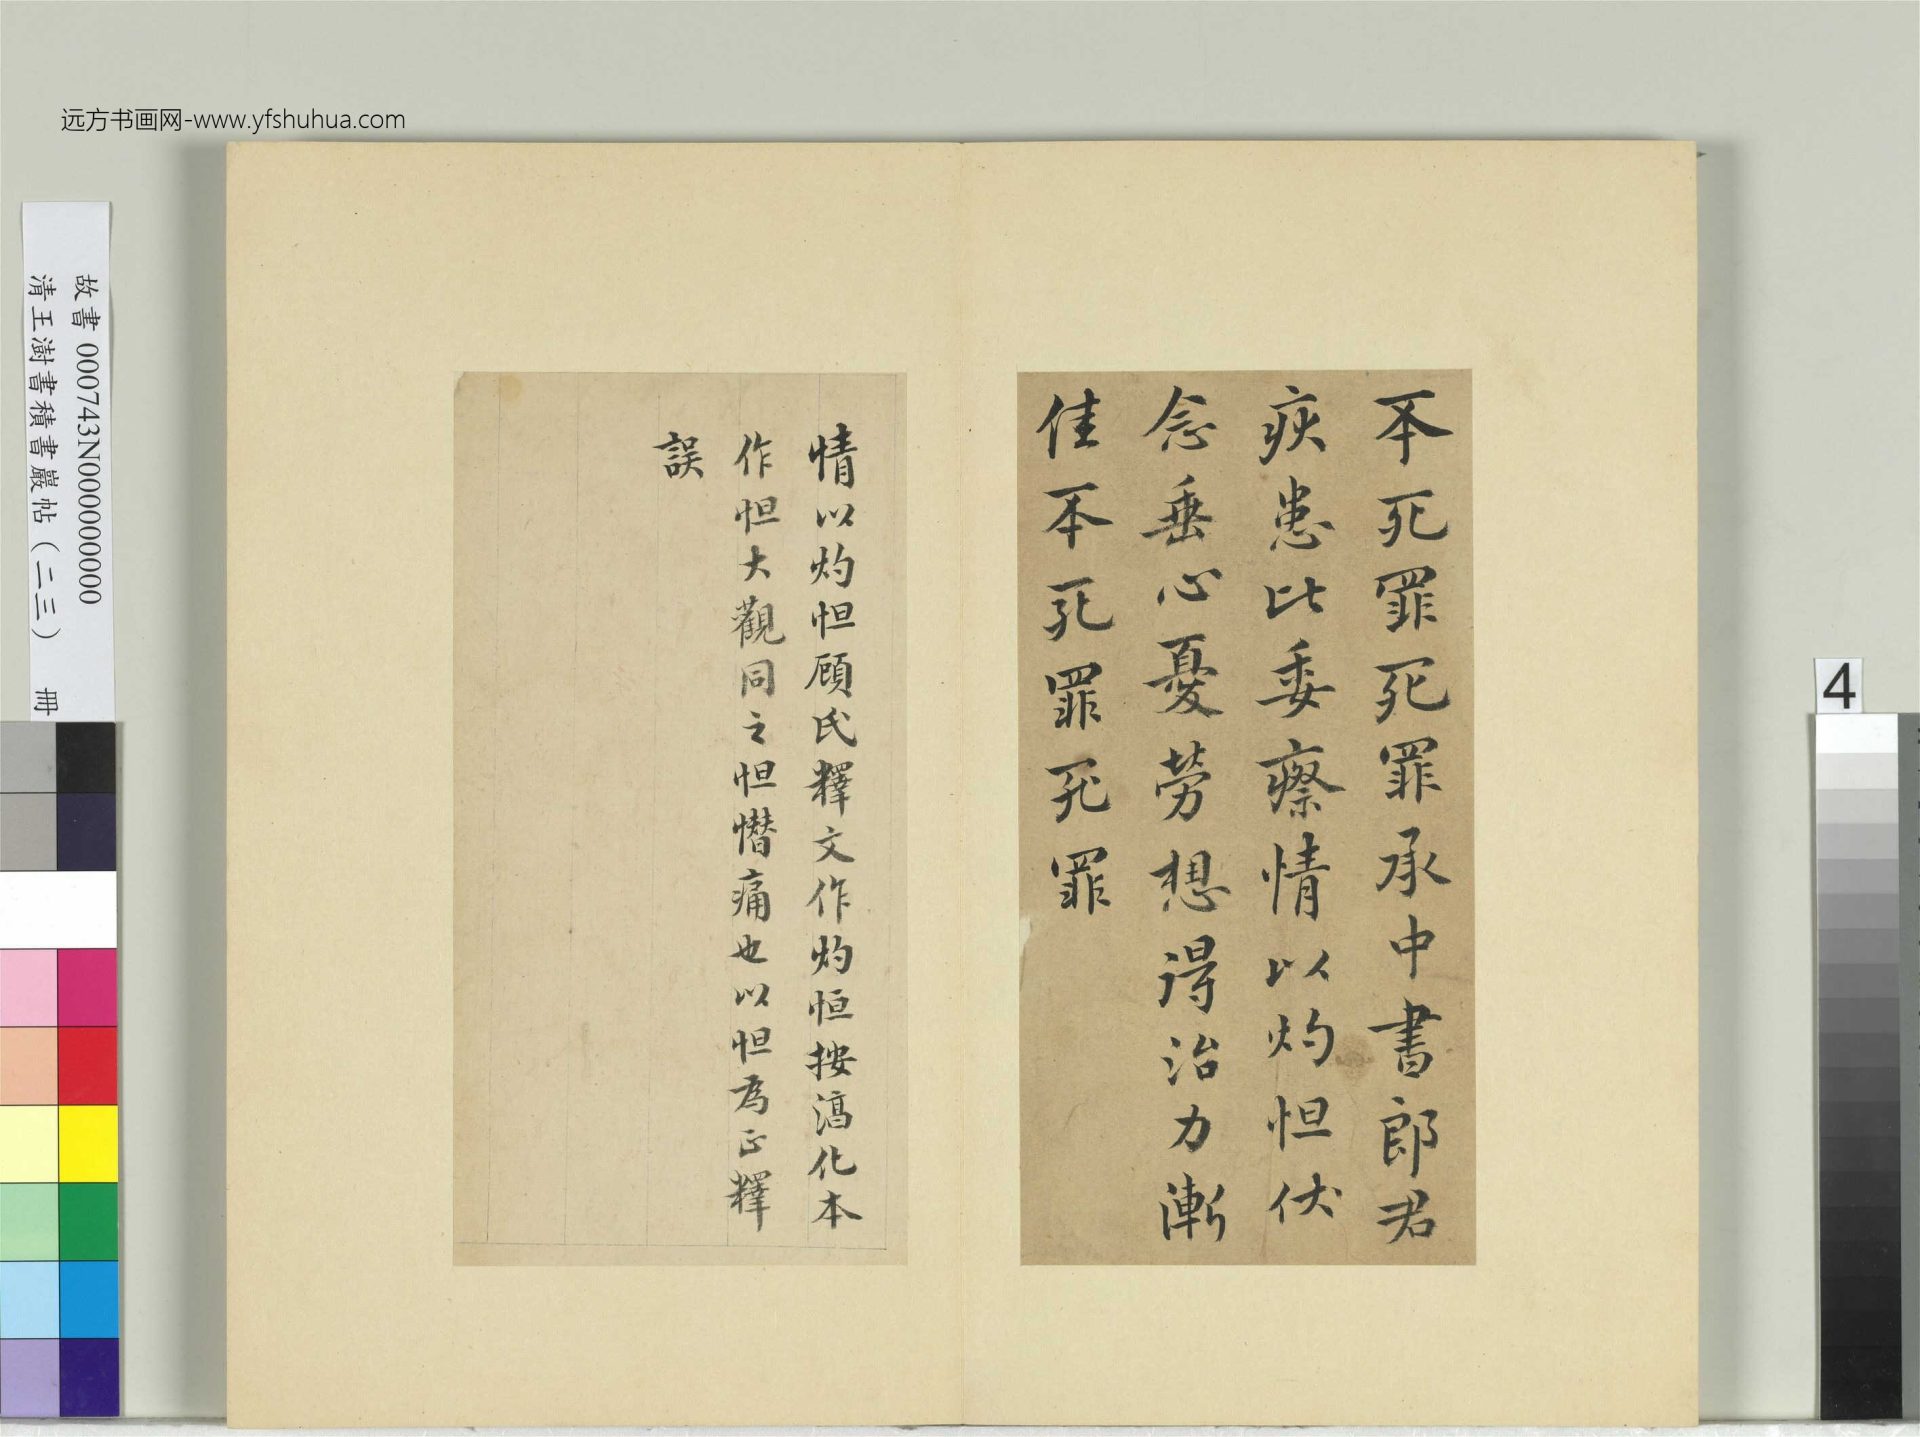 远方书画网-www.yfshuhua.com
故書 000743N000000000
清王澍書積書巖帖(二三) 冊
4
不死罪死罪承中書郎君
疢患比委瘵情以灼怛伏
念垂心憂勞想得治力漸
佳不死罪死罪
情以灼怛顧氏釋文作灼恒按淳化本
作怛大觀同之怛憯痛也以怛為正釋
誤